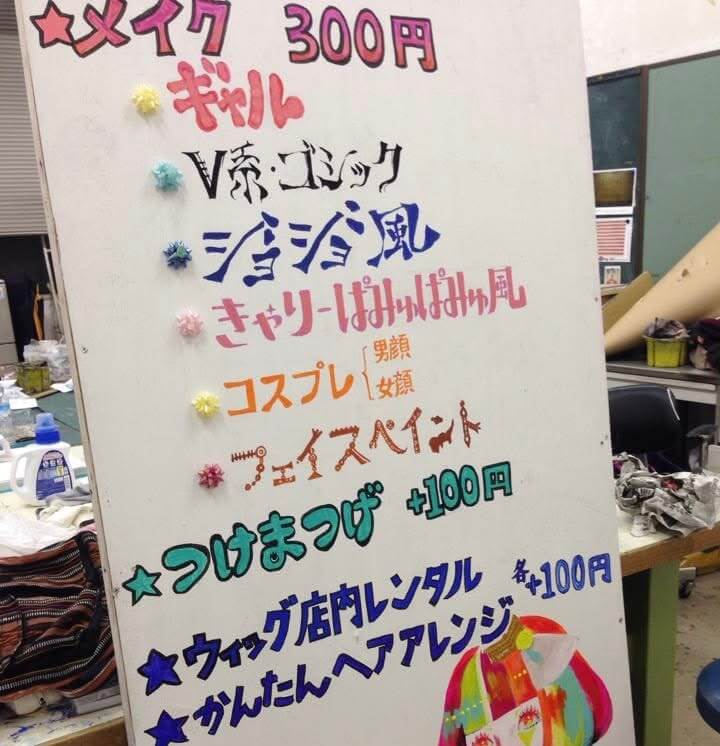 ★メイク 300円
ギャル
V系・ゴシック
ジョジョ風
きゃりーぱみゅぱみゅ風
コスプレ{男顔
女顔
フェイスペイント
★つけまつげ +100円
★ウィッグ店内レンタル 各+100円
★かんたんヘアアレンジ